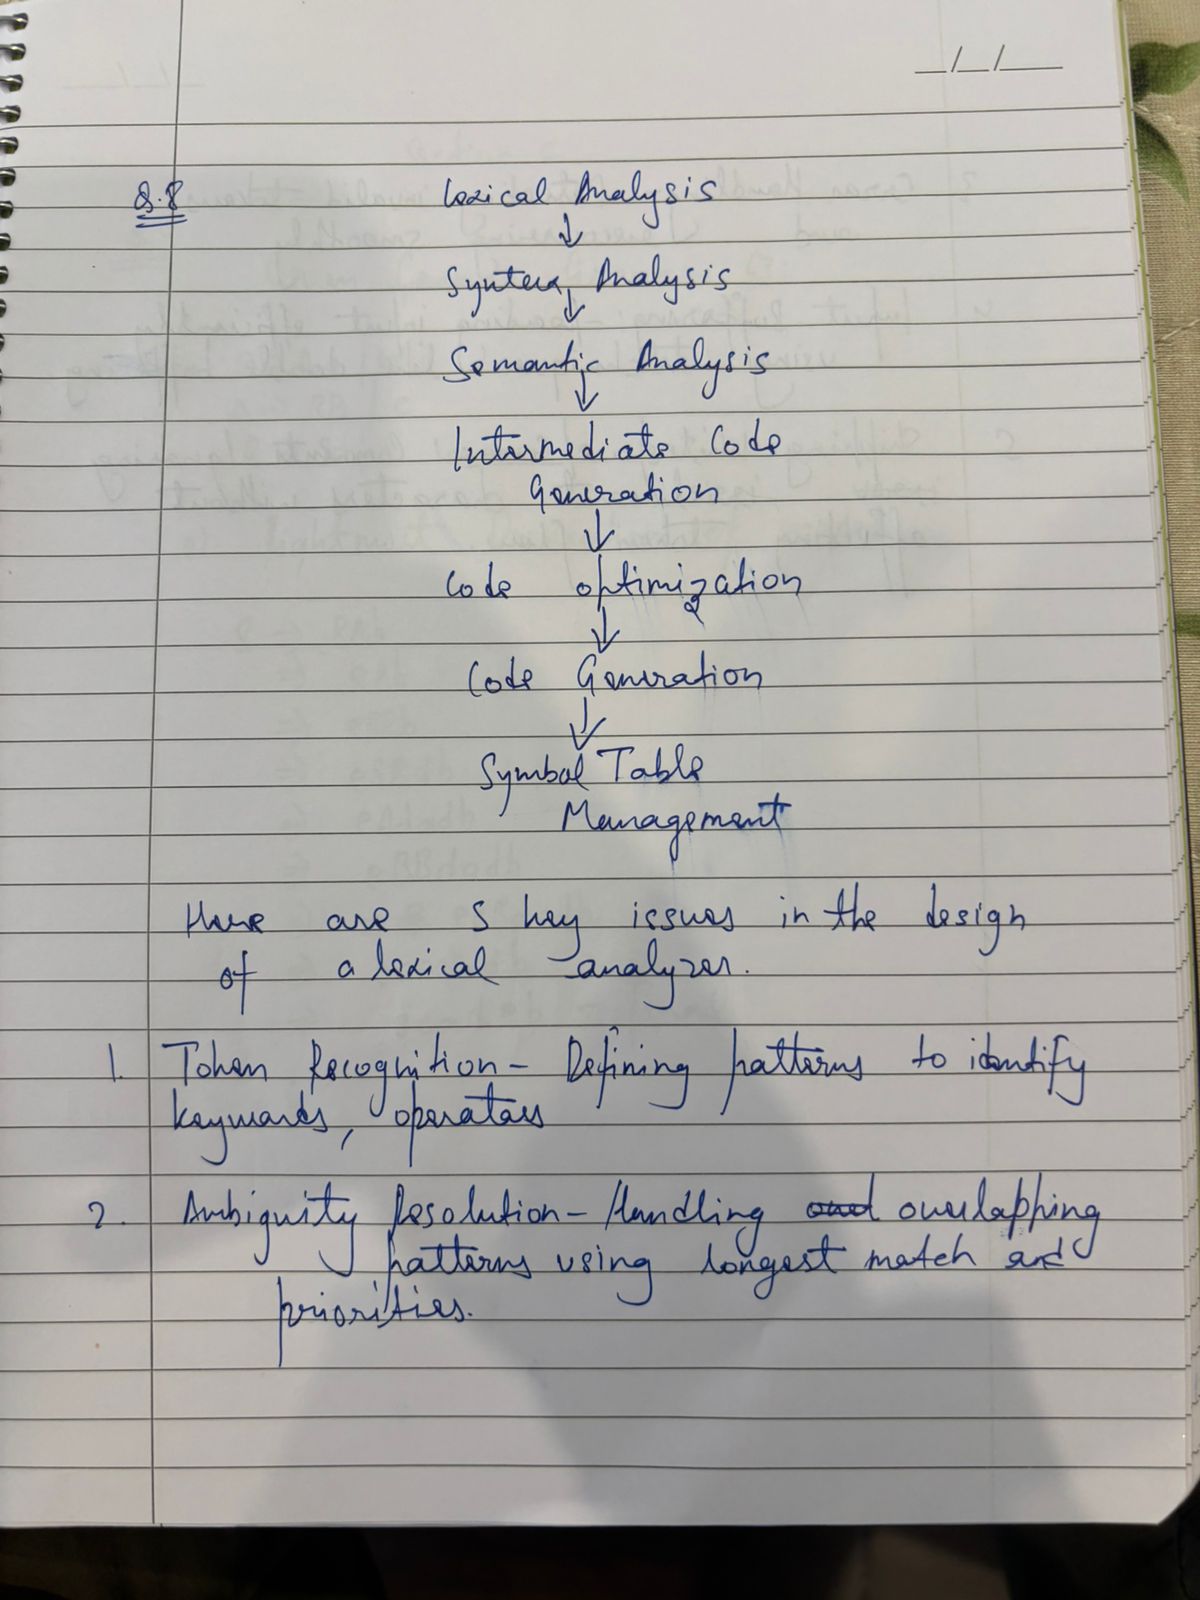 _/_/_
Q.8 Lexical Analysis
↓
Syntax Analysis
↓
Semantic Analysis
↓
Intermediate Code
Generation
↓
Code optimization
↓
Code Generation
↓
Symbol Table
Management
Here are 5 key issues in the design
of a lexical analyzer.
1. Token Recognition - Defining patterns to identify
keywords, operators
2. Ambiguity Resolution - Handling and overlapping
patterns using longest match and
priorities.